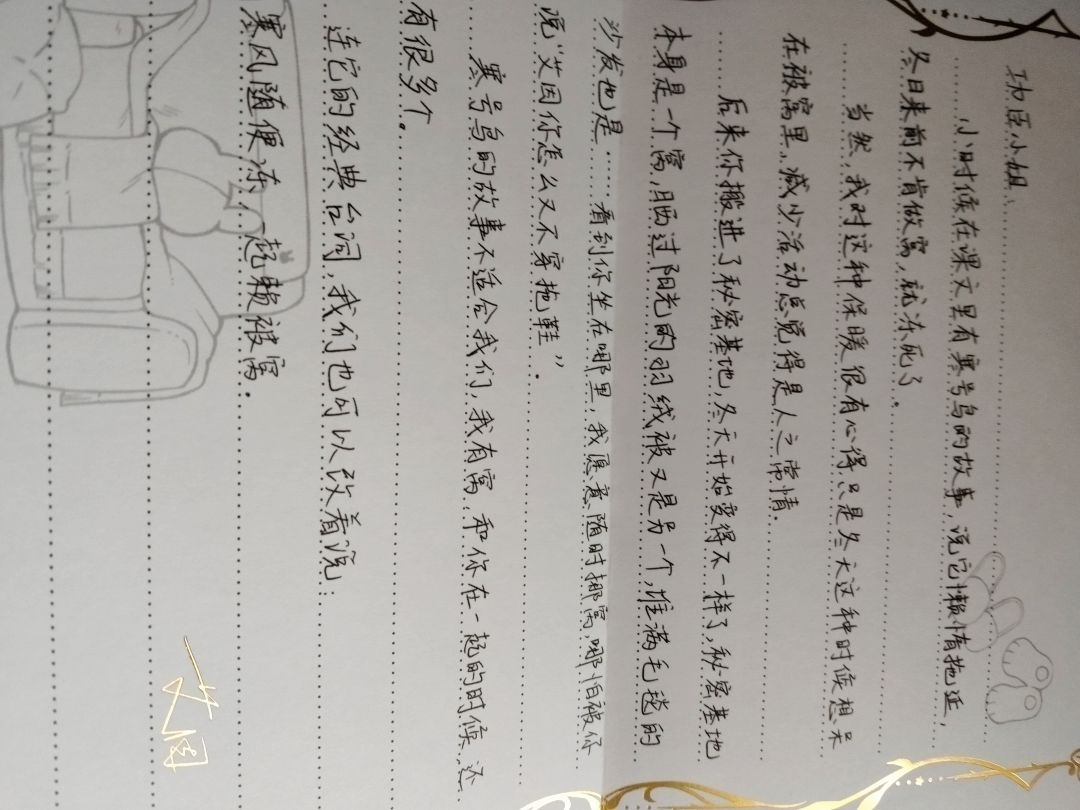 小姐:
小时候在课文里有寒号鸟的故事,说它懒惰拖延,
冬日来前不肯做窝,就冻死了。
当然,我对这种保暖很有心得,只是冬天这种时候想呆
在被窝里,减少活动总觉得是人之常情.
后来你搬进了秘密基地,冬天开始变得不一样了,秘密基地
本身是一个窝,晒过阳光的羽绒被又是另一个,堆满毛毯的
沙发也是……看到你坐在哪里,我愿意随时挪窝,哪怕被你
说“艾因你怎么又不穿拖鞋”.
寒号鸟的故事不适合我们,我有窝,和你在一起的时候,还
有很多个。
连它的经典台词,我们也可以改着说:
寒风随便冻,一起赖被窝.
艾因